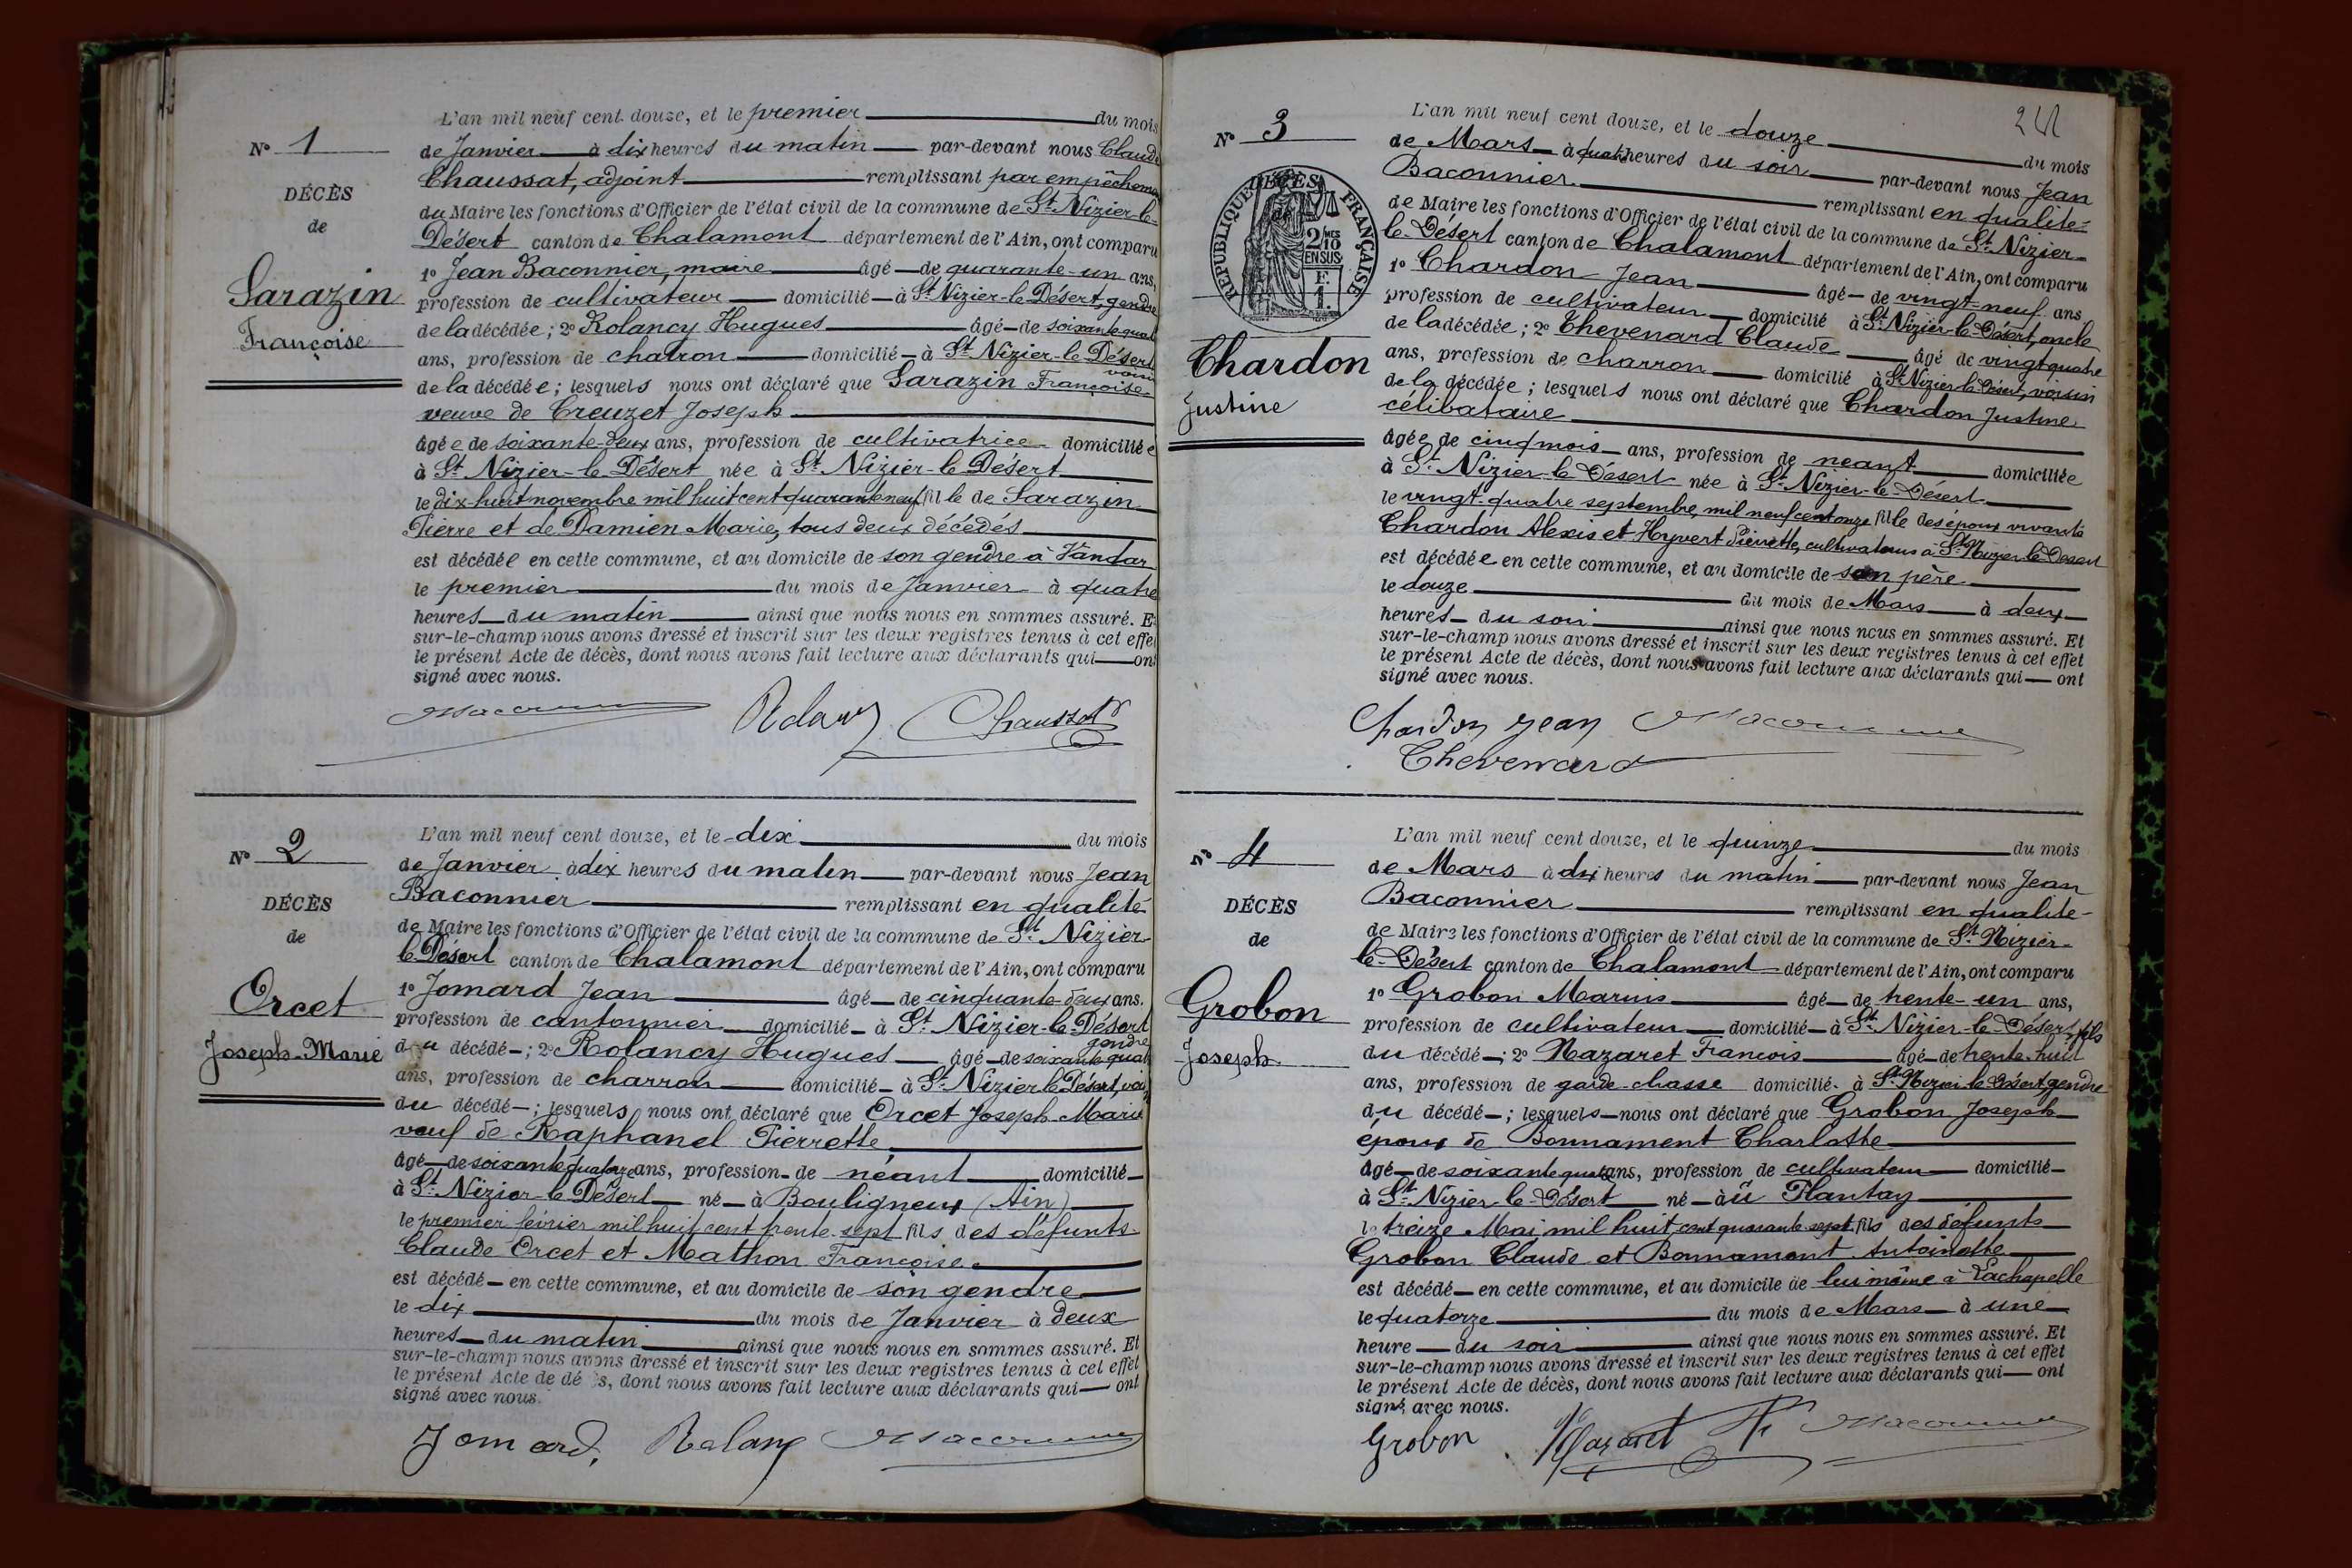 N° 1
DÉCÈS
de
Sarazin
Françoise
L'an mil neuf cent douze, et le premier du mois
de Janvier à dix heures du matin par-devant nous Claude
Chaussat, adjoint remplissant par empêcheme
du Maire les fonctions d'Officier de l'état civil de la commune de St Nizier-le-
Désert canton de Chalamont département de l'Ain, ont comparu
1° Jean Baconnier, maire âgé de quarante-un ans,
profession de cultivateur domicilié à St Nizier-le-Désert, gendre
de la décédée; 2° Rolancy Hugues âgé de soixante quat
ans, profession de charron domicilié à St Nizier-le-Désert
voisin
de la décédée; lesquels nous ont déclaré que Sarazin Françoise
veuve de Creuzet Joseph
âgée de soixante-deux ans, profession de cultivatrice domiciliée
à St Nizier-le-Désert née à St Nizier-le-Désert
le dix-huit novembre mil huit cent quarante neuf fille de Sarazin
Pierre et de Damien Marie, tous deux décédés
est décédée en cette commune, et au domicile de son gendre à Vandar
le premier du mois de Janvier à quatre
heures du matin ainsi que nous nous en sommes assuré. E
sur-le-champ nous avons dressé et inscrit sur les deux registres tenus à cet effe
le présent Acte de décès, dont nous avons fait lecture aux déclarants qui ont
signé avec nous.
Rolancy Chaussat
N° 2
DÉCÈS
de
Orcet
Joseph-Marie
L'an mil neuf cent douze, et le dix du mois
de Janvier à dix heures du matin par-devant nous Jean
Baconnier remplissant en qualité
de Maire les fonctions d'Officier de l'état civil de la commune de St Nizier
le Désert canton de Chalamont département de l'Ain, ont comparu
1° Jomard Jean âgé de cinquante-deux ans.
profession de cantonnier domicilié à St Nizier-le-Désert
gendre
du décédé; 2° Rolancy Hugues âgé de soixante quat
ans, profession de charron domicilié à St Nizier le Désert, voi
du décédé; lesquels nous ont déclaré que Orcet Joseph-Marie
veuf de Raphanel Pierrette
âgé de soixante quatorze ans, profession de néant domicilié
à St Nizier-le-Désert né à Bouligneux (Ain)
le premier février mil huit cent trente-sept fils des défunts
Claude Orcet et Mathon Françoise
est décédé en cette commune, et au domicile de son gendre
le dix du mois de Janvier à deux
heures du matin ainsi que nous nous en sommes assuré. Et
sur-le-champ nous avons dressé et inscrit sur les deux registres tenus à cet effet
le présent Acte de dé s, dont nous avons fait lecture aux déclarants qui ont
signé avec nous.
Jomard, Rolancy
N° 3
RÉPUBLIQUE FRANÇAISE
DÉCÈS
2/10 MES
EN SUS
F.
1.
Chardon
Justine
L'an mil neuf cent douze, et le douze du mois
de Mars à quatre heures du soir par-devant nous Jean
Baconnier remplissant en qualité
de Maire les fonctions d'Officier de l'état civil de la commune de St Nizier-
le-Désert canton de Chalamont département de l'Ain, ont comparu
1° Chardon Jean âgé de vingt-neuf ans
profession de cultivateur domicilié à St Nizier-le-Désert, oncle
de la décédée; 2° Thevenard Claude âgé de vingt quatre
ans, profession de charron domicilié à St Nizier-le-Désert, voisin
de la décédée; lesquels nous ont déclaré que Chardon Justine
célibataire
âgée de cinq mois ans, profession de neant domiciliée
à St Nizier-le-Désert née à St Nizier-le-Désert
le vingt-quatre septembre, mil neuf cent onze fille des époux vivants
Chardon Alexis et Hyvert Pierrette, cultivateurs à St Nizier-le-Désert
est décédée en cette commune, et au domicile de son père
le douze du mois de Mars à deux
heures du soir ainsi que nous nous en sommes assuré. Et
sur-le-champ nous avons dressé et inscrit sur les deux registres tenus à cet effet
le présent Acte de décès, dont nous avons fait lecture aux déclarants qui ont
signé avec nous.
Chardon Jean
Thevenard
N° 4
DÉCÈS
de
Grobon
Joseph
L'an mil neuf cent douze, et le quinze du mois
de Mars à dix heures du matin par-devant nous Jean
Baconnier remplissant en qualité
de Maire les fonctions d'Officier de l'état civil de la commune de St Nizier-
le-Désert canton de Chalamont département de l'Ain, ont comparu
1° Grobon Marius âgé de trente-un ans,
profession de cultivateur domicilié à St Nizier-le-Désert, fils
du décédé; 2° Nazaret François âgé de trente-huit
ans, profession de garde-chasse domicilié à St Nizier le Désert, gendre
du décédé; lesquels nous ont déclaré que Grobon Joseph
époux de Bonnament Charlotte
âgé de soixante quatre ans, profession de cultivateur domicilié
à St Nizier-le-Désert né àu Plantay
le treize Mai mil huit cent quarante sept fils des défunts
Grobon Claude et Bonnamont Antoinette
est décédé en cette commune, et au domicile de lui même à Lachapelle
le quatorze du mois de Mars à une
heure du soir ainsi que nous nous en sommes assuré. Et
sur-le-champ nous avons dressé et inscrit sur les deux registres tenus à cet effet
le présent Acte de décès, dont nous avons fait lecture aux déclarants qui ont
signé avec nous.
Grobon Nazaret